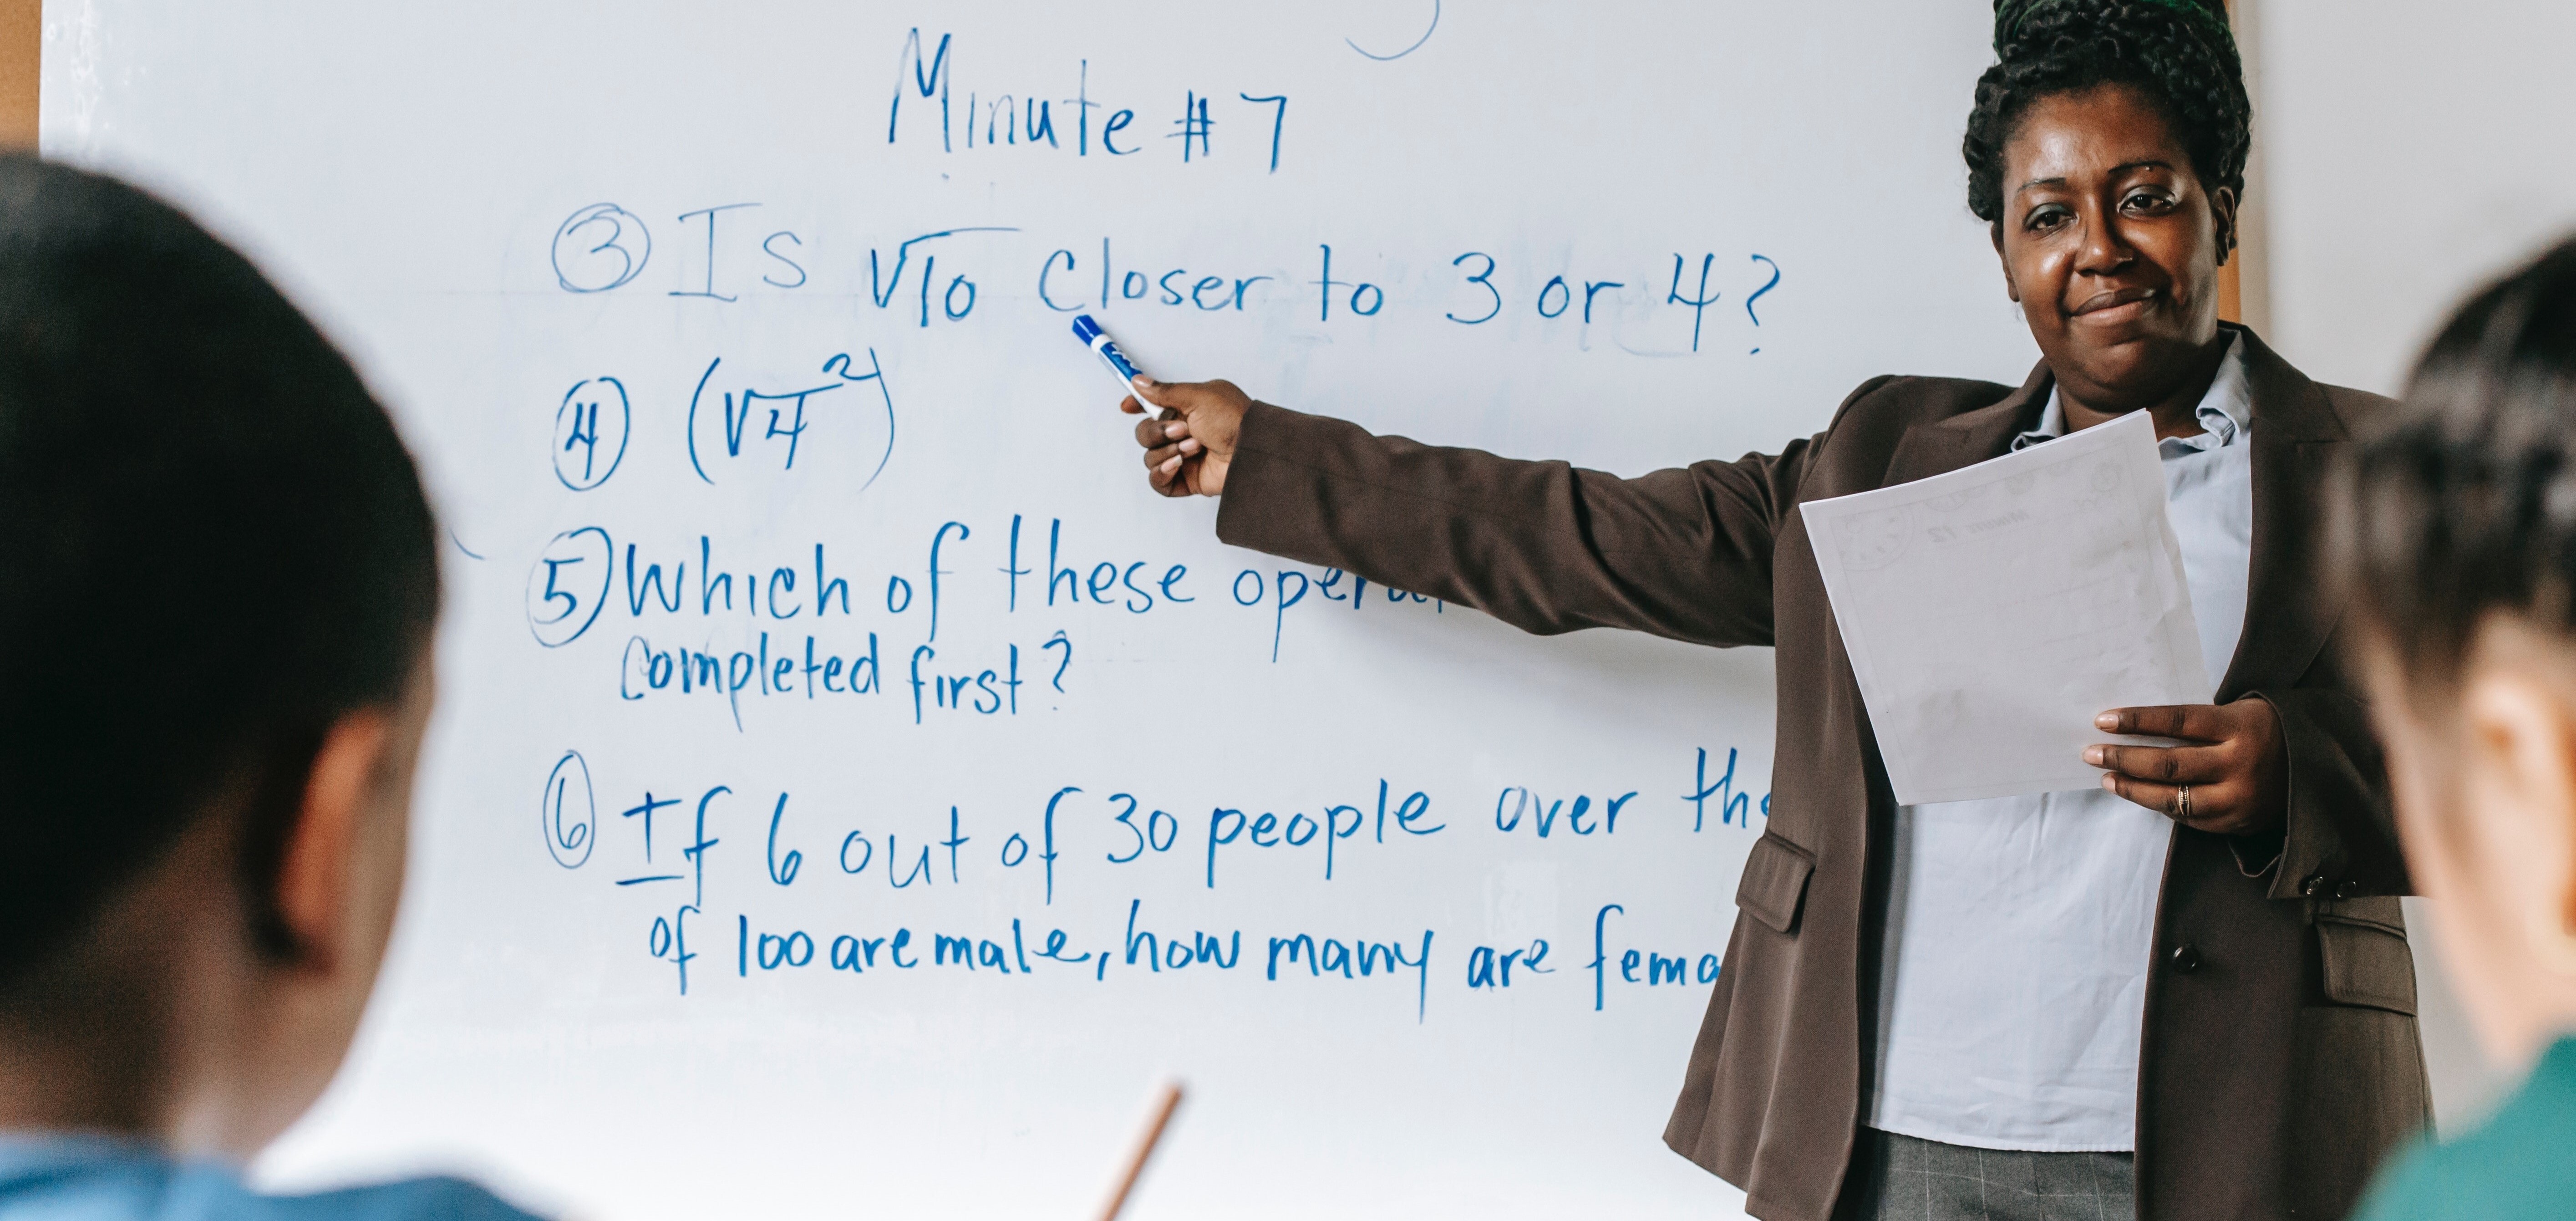 Minute #7
③ Is √10 closer to 3 or 4?
④ (√4²)
⑤ Which of these
completed first?
⑥ If 6 out of 30 people over
of 100 are male, how many are